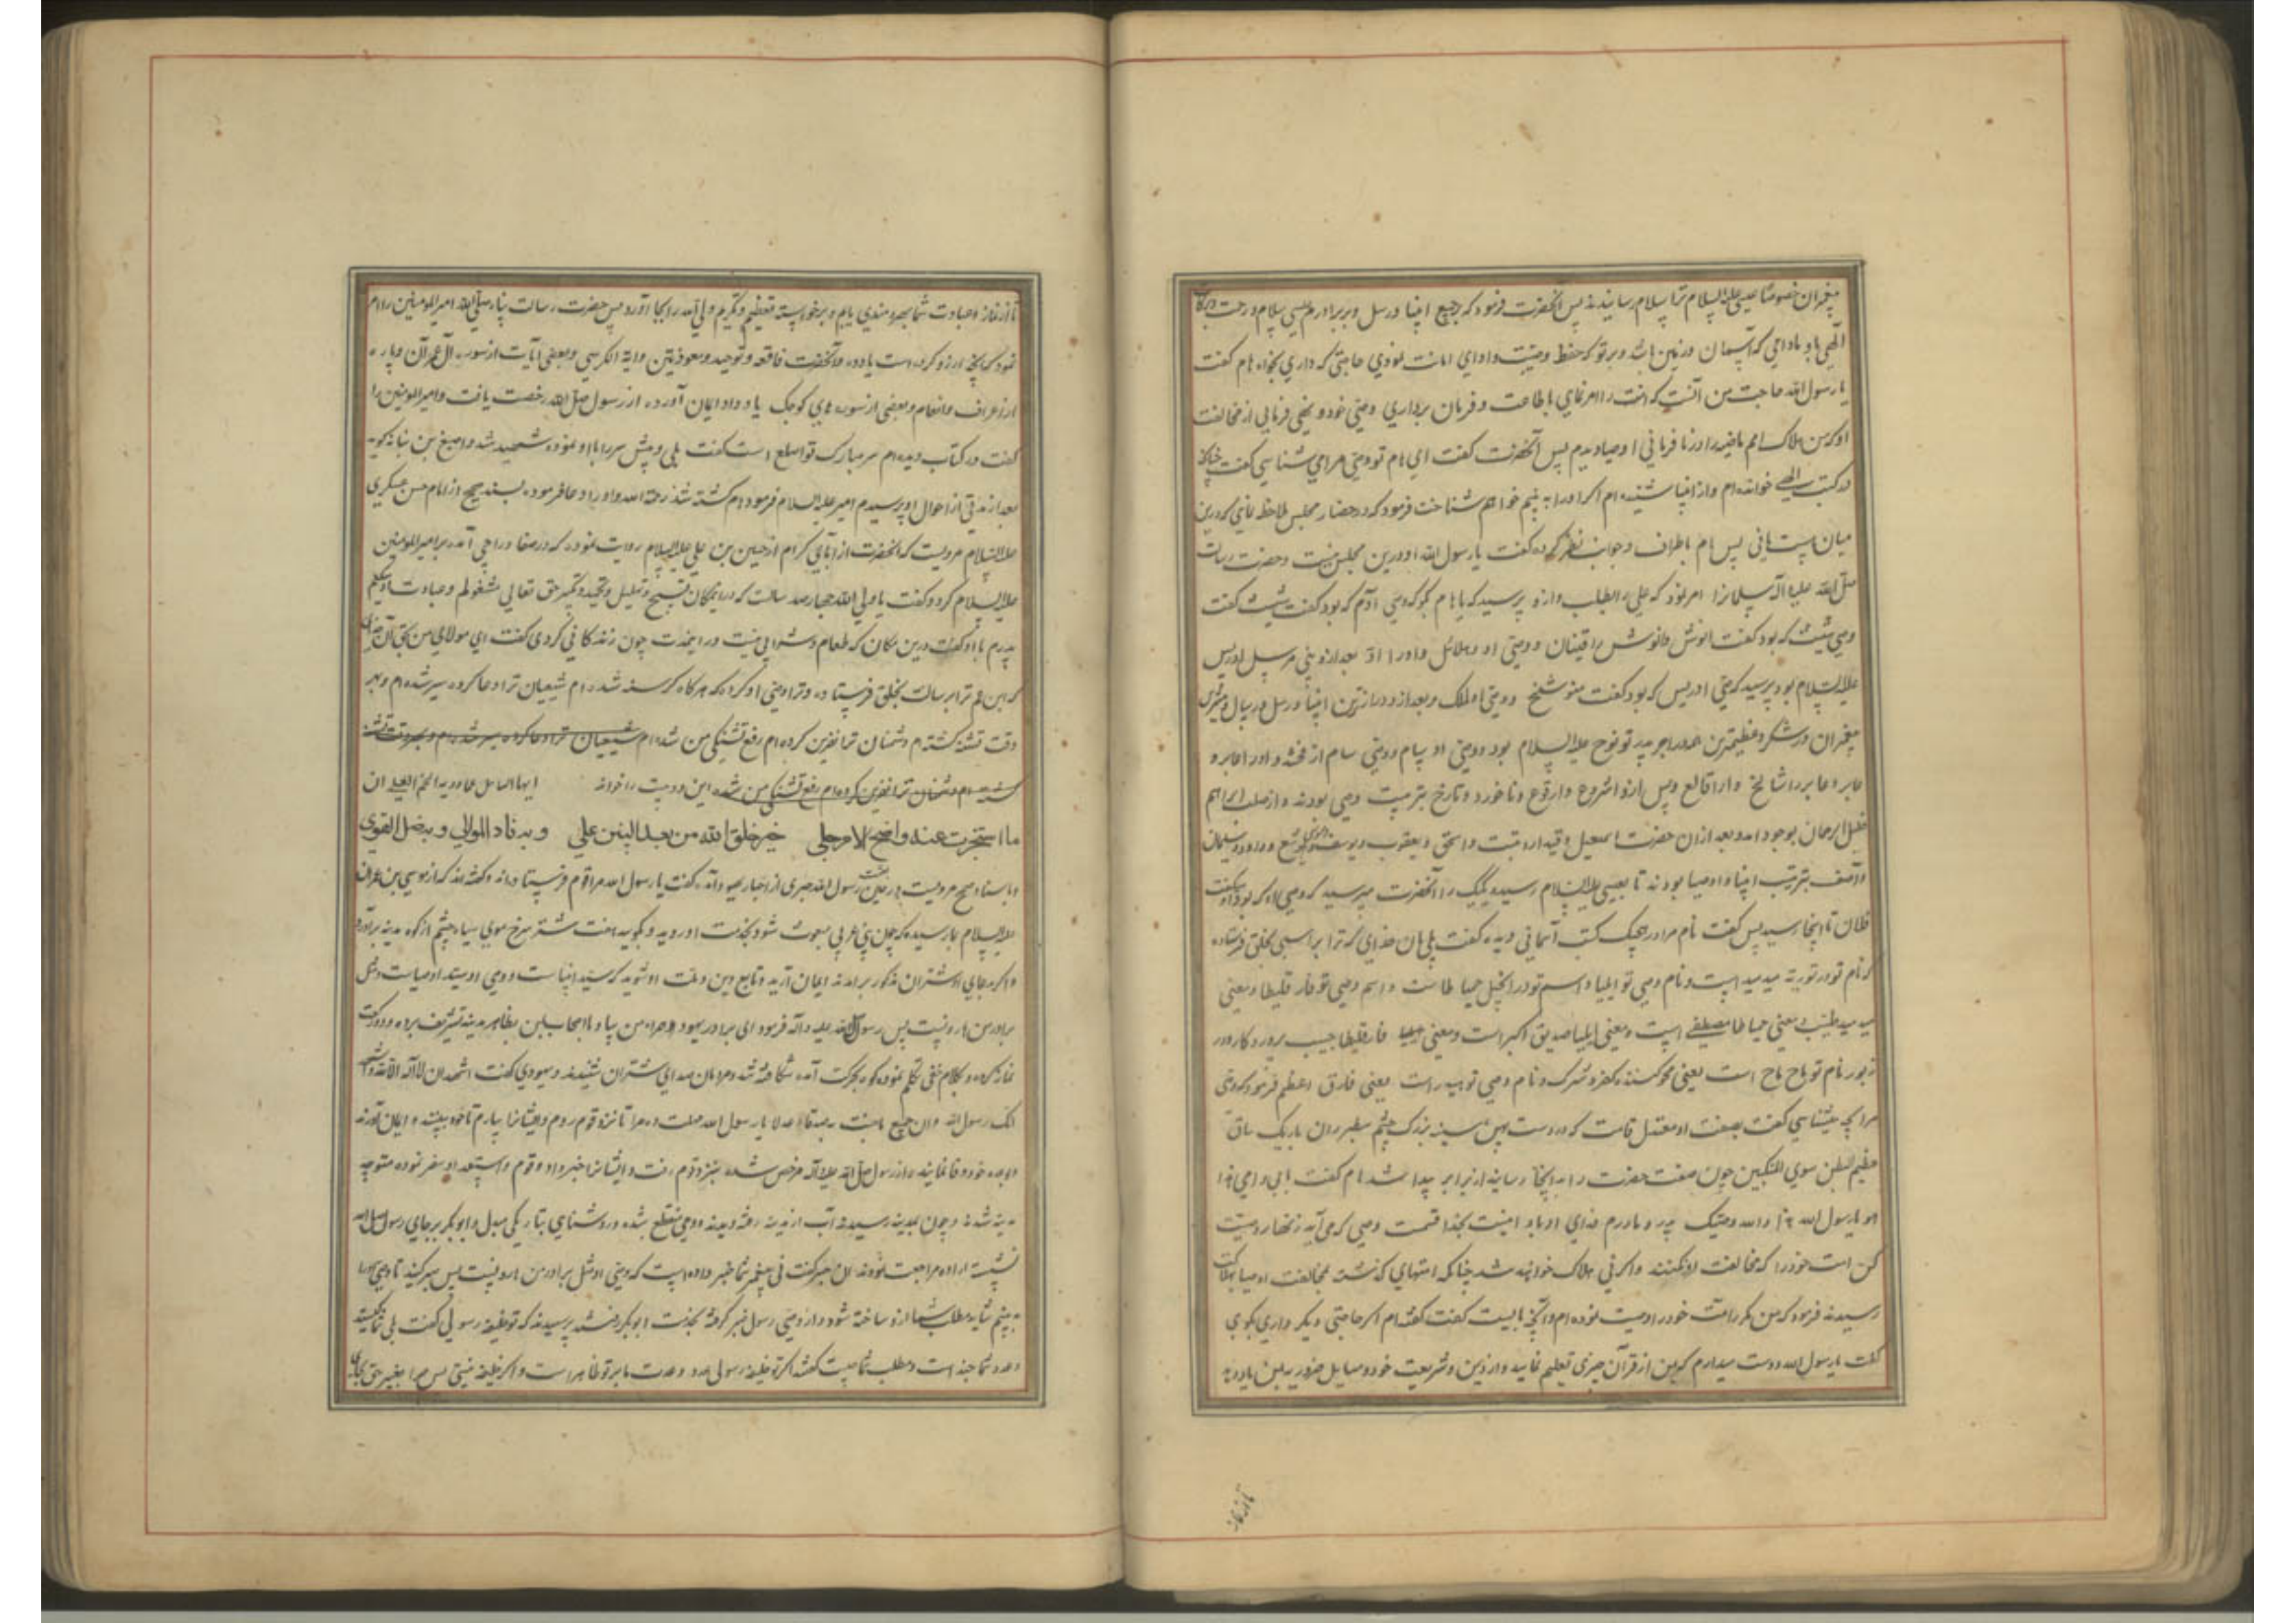 پیغمبران خصوصا عیسی علیه السلام ترا سلام رسانیدند پس آنحضرت فرمود که بر جمیع انبیا و رسل و بر برادرم عیسی سلام و رحمت و برکات
الهی باد مادامی که آسمان و زمین باشد و بر تو که حفظ وصیت و ادای امانت نمودی حاجتی که داری بخواه هام گفت
یا رسول الله حاجت من آنست که امت را امر نمای باطاعت و فرمان برداری وصی خود و نهی فرمایی از مخالفت
او که من هلاک امم ماضیه را در نافرمانی اوصیا دیدم پس آنحضرت گفت ای هام تو وصی مرا می شناسی گفت چنانکه
در کتب الهی خوانده ام و از انبیا شنیده ام اگر او را به بینم خواهم شناخت فرمود که در حضار مجلس ملاحظه نمای که درین
میان هست یا نی پس هام باطراف و جوانب نظر کرده گفت یا رسول الله او درین مجلس نیست و حضرت رسالت
صلی الله علیه و آله سلمانرا امر نمود که علی را بطلب و ازو پرسید که یا هام بگو که وصی آدم که بود گفت شیث گفت
وصی شیث که بود گفت انوش و انوش را قینان و وصی او مهلائل و او را ادد بعد ازو نبی مرسل ادریس
علیه السلام بود پرسید که وصی ادریس که بود گفت متوشلخ و وصی او لملک و بعد ازو درازترین انبیا و رسل
پیغمبران در شکر و عظیمترین پدر تو نوح علیه السلام بود و وصی او سام و وصی سام ارفخشد و او را عابر و
عابر و عابر را شالخ و او را قالع و پس ازو اشروع و ارقوع و ناخور و تارخ بترتیب وصی بودند و از صلب ابراهیم
خلیل الرحمان بوجود آمد و بعد ازان حضرت اسمعیل و قیدار و نبت و اسحق و یعقوب و یوسف و موسی و یوشع و داود و سلیمان
و آصف بترتیب انبیا و اوصیا بودند تا بعیسی علیه السلام رسید و یک یک را آنحضرت میپرسید که وصی او که بود او میگفت
فلان تا اینجا رسید پس گفت نام مرا در هیچیک کتب آسمانی دیده گفت بلی بآن خدای که ترا براستی بخلق فرستاده
که نام تو در توریه میدمید است و نام وصی تو ایلیا و اسم تو در انجیل حمیاطا است و اسم وصی تو فارقلیطا و معنی
میدمید طیب و معنی حمیاطا مصطفی است و معنی ایلیا صدیق اکبر است و معنی فارقلیطا حبیب پروردگار و در
زبور نام تو ماح ماح است یعنی محو کننده کفر و شرک و نام وصی تو هیدار است یعنی فارق اعظم فرمود که وصی
مرا چه میشناسی گفت بصفت او معتدل قامت گرد روست پهن سینه بزرگ چشم سطبر ران باریک ساق
عظیم البطن سوی المنکبین چون صفت حضرت را به اینجا رسانید از برابر پیدا شد هام گفت بابی و امی هذا
هو یا رسول الله هذا والله وصیک پدر و مادرم فدای او باد اینست بخدا قسمت وصی که می آید زنهار وصیت
کن امت خود را که مخالفت او نکنند و اگر نی هلاک خواهند شد چنانکه امتهای گذشته بمخالفت اوصیا بهلاکت
رسیدند فرمود که من مکرر امت خود را وصیت نموده ام و آنچه بایست گفت گفته ام اگر حاجتی دیگر داری بگوی
گفت یا رسول الله دوست میدارم که بمن از قرآن چیزی تعلیم نمایید و از دین و شریعت خود و مسایل ضروریه بمن یاد دهید
تا از نماز
تا از نماز و عبادت شما بهره مندی یابم و برخواسته تعظیم و تکریم ولی الله را بجا آورد پس حضرت رسالت پناه صلی الله امیرالمومنین را امر
نمود که آنچه آرزو کرده است یاد ده و آنحضرت فاتحه و توحید و معوذتین و ایه الکرسی و بعضی آیات از سوره آل عمران و پاره
از اعراف و انعام و بعضی از سوره های کوچک یاد داد ایمان آورده از رسول صلی الله رخصت یافت و امیرالمومنین را
گفت در کتاب دیده ام سر مبارک تو اصلع است گفت بلی و پیش سر را باو نموده شهید شد و اصبغ بن نباته گوید
بعد از مدتی از احوال او پرسیدم امیر علیه السلام فرمود هام کشته شد رحمة الله و او را دعا فرمود بسند صحیح از امام حسن عسکری
علیه السلام مرویست که آنحضرت از آبای کرام از حسین بن علی علیه السلام روایت نموده که در صفا دراجی آمده بر امیرالمومنین
علیه السلام کرد و گفت یا ولی الله چهارصد سالست که در این مکان بتسبیح و تهلیل و تحمید و تکبیر حق تعالی مشغولم و عبادت او میکنم
پدرم با او گفت درین مکان که طعام و شرابی نیست در این مدت چون زندگانی کردی گفت ای مولای من بحق آن خدای
که ابن عم ترا برسالت بخلق فرستاده و ترا وصی او کرده که هرگاه گرسنه شده ام شیعیان ترا دعا کرده سیر شده ام و هر
وقت تشنه گشته ام دشمنان ترا نفرین کرده ام رفع تشنگی من شده ام شیعیان ترا دعا کرده سیر شده ام و هر وقت تشنه
گشته ام دشمنان ترا نفرین کرده ام رفع تشنگی من شده این دو بیت را خواند
ما استخبرت عنه واضح الامر جلی خیر خلق الله من بعد النبیین علی وبه فاد الموالی وبه ضل الغوی
و باسناد صحیح مرویست که رسول الله حبری از احبار یهود آمده گفت یا رسول الله مرا قوم فرستاده اند و گفته اند که از موسی بن عمران
علیه السلام بما رسیده که چون نبی عربی مبعوث شود بخدمت او روید و بگویید هفت شتر سرخ موی سیاه چشم از کوه مدینه برآورد
و اگر بدعای او شتران مذکور برآمدند ایمان آرید و تابع دین و ملت او شوید که سید انبیاست و وصی او سید اوصیاست و مثل
برادر من هارونست پس رسول الله علیه و آله فرمود ای برادر یهود همراه من بیا و با اصحاب بظاهر مدینه تشریف برده و دو رکعت
نماز کرده و کلام خفی تکلم نموده کوه بحرکت آمده شکافته شد و مردمان صدای شتران شنیدند و یهودی گفت اشهد ان لا اله الا الله و اشهد
انک رسول الله وان جمیع ما جئت به صدقا و عدلا یا رسول الله مهلت ده مرا تا نزد قوم روم و ایشانرا بیارم تا خود ببینند و ایمان آورند
و بوعده خود وفا نمایند و از رسول صلی الله علیه و آله مرخص شده بنزد قوم رفت و ایشانرا خبر داد و قوم و استعداد سفر نموده متوجه
مدینه شدند و چون بمدینه رسیدند آب از مدینه رفته دیدند و وحی منقطع شده و روشنایی بتاریکی مبدل و ابوبکر بر جای رسول الله
نشسته اراده مراجعت نمودند آن حبر گفت نی پیغمبر شما خبر داده است که وصی او مثل برادر من هارونست پس صبر کنید تا وصی او را
به بینم شاید مطلب شما ازو ساخته شود و از وصی رسول خبر گرفته بخدمت ابوبکر رفتند پرسیدند که تو خلیفه رسولی گفت بلی شما کیستید
و عدد شما چند است و مطلب شما چیست گفتند اگر تو خلیفه رسولی عدد و عدت ما بر تو ظاهر است و اگر خلیفه نیستی پس چرا بغیر حق بجای